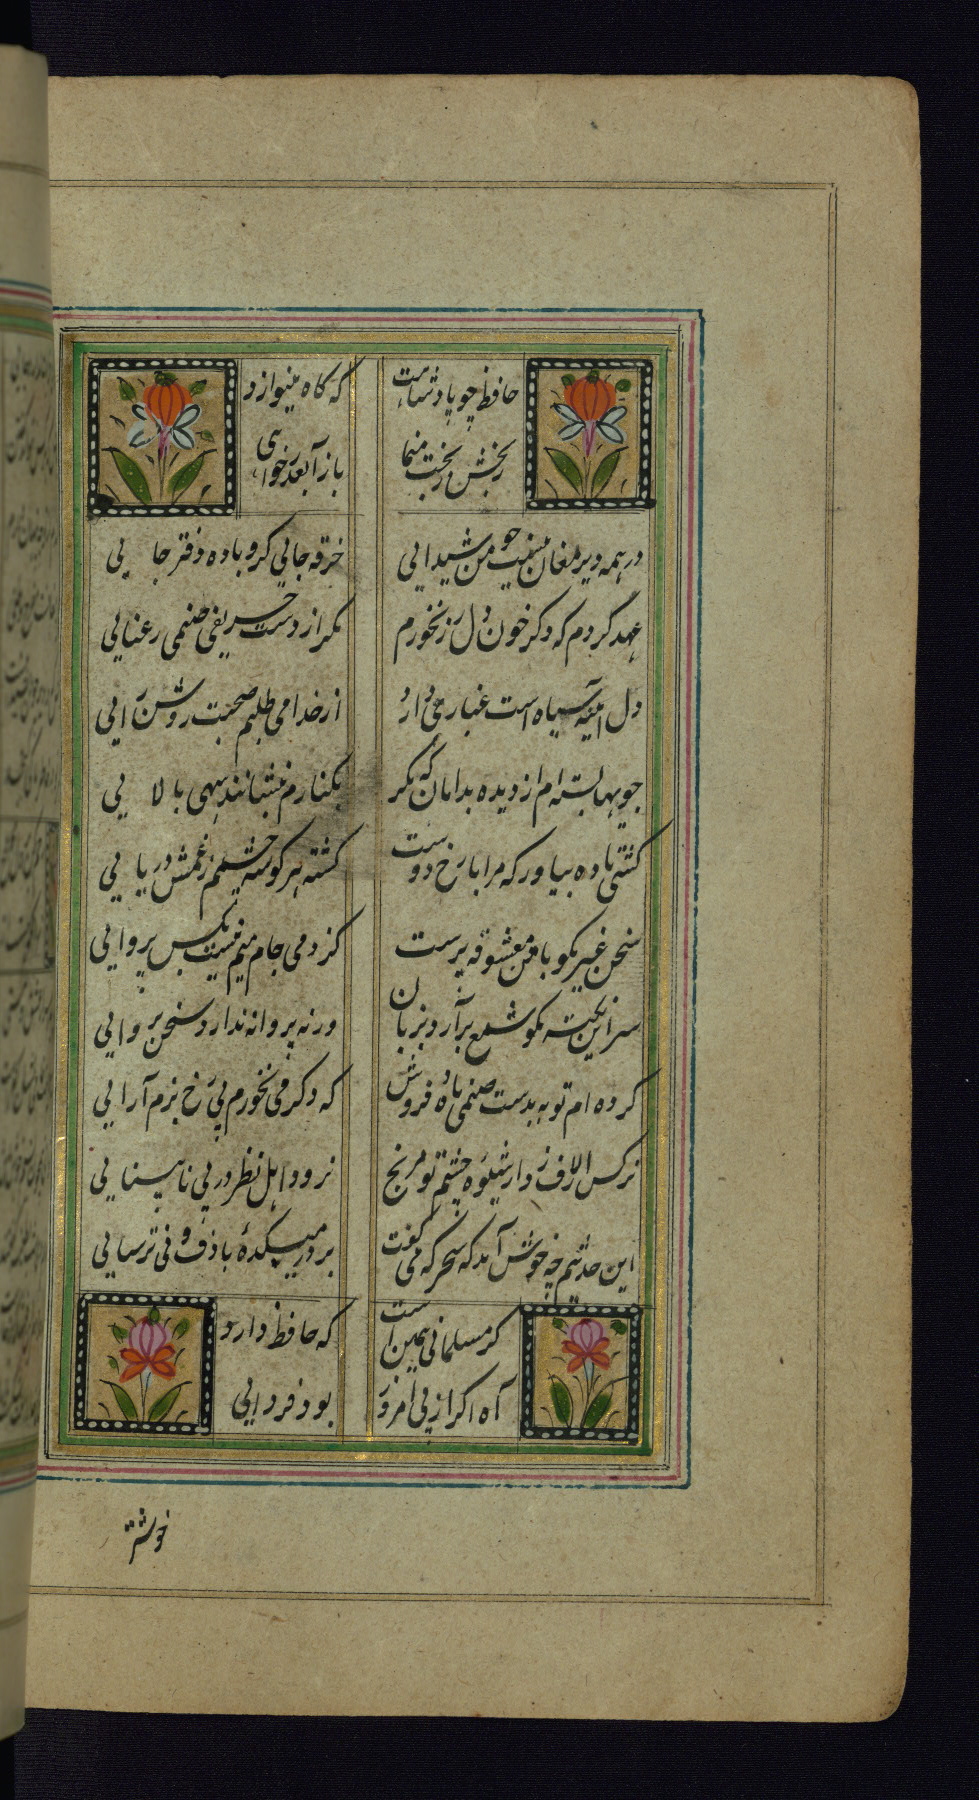 حافظ چو پادشاهت که گاه مینوازد
رنجش ز بخت منما بازآ بعذر خواهی
در همه دیر مغان نیست چو من شیدایی خرقه جایی کرو باده و دفتر جایی
عهد کردم که دکر خون دل رز نخورم مکر از دست حریفی صنمی رعنایی
دل آینه سیاه است غباری دارد از خدا می طلبم صحبت روشن رایی
جویها بسته ام از دیده بدامان که مکر بکنارم بنشانند سهی بالایی
کشتی باده بیاور که مرا با رخ دوست کشته هر کوشه چشمم ز غمش دریایی
سخن غیر مکو با من معشوقه پرست کز وی و جام میم نیست بکس پروایی
سر این نکته مکو شمع برآرد بزبان ورنه پروانه ندارد سخن پروایی
کرده ام توبه بدست صنمی باده فروش که دکر می نخورم بی رخ بزم آرایی
نرکس ار لاف زد از شیوه چشم تو مرنج نرود اهل نظر در پی نابینایی
این حدیثم چه خوش آمد که سحرکه می کفت بر در میکدۀ با دف و نی ترسایی
کر مسلمانی همین است که حافظ دارد
آه اکر از پی امروز بود فردایی
خوشتر